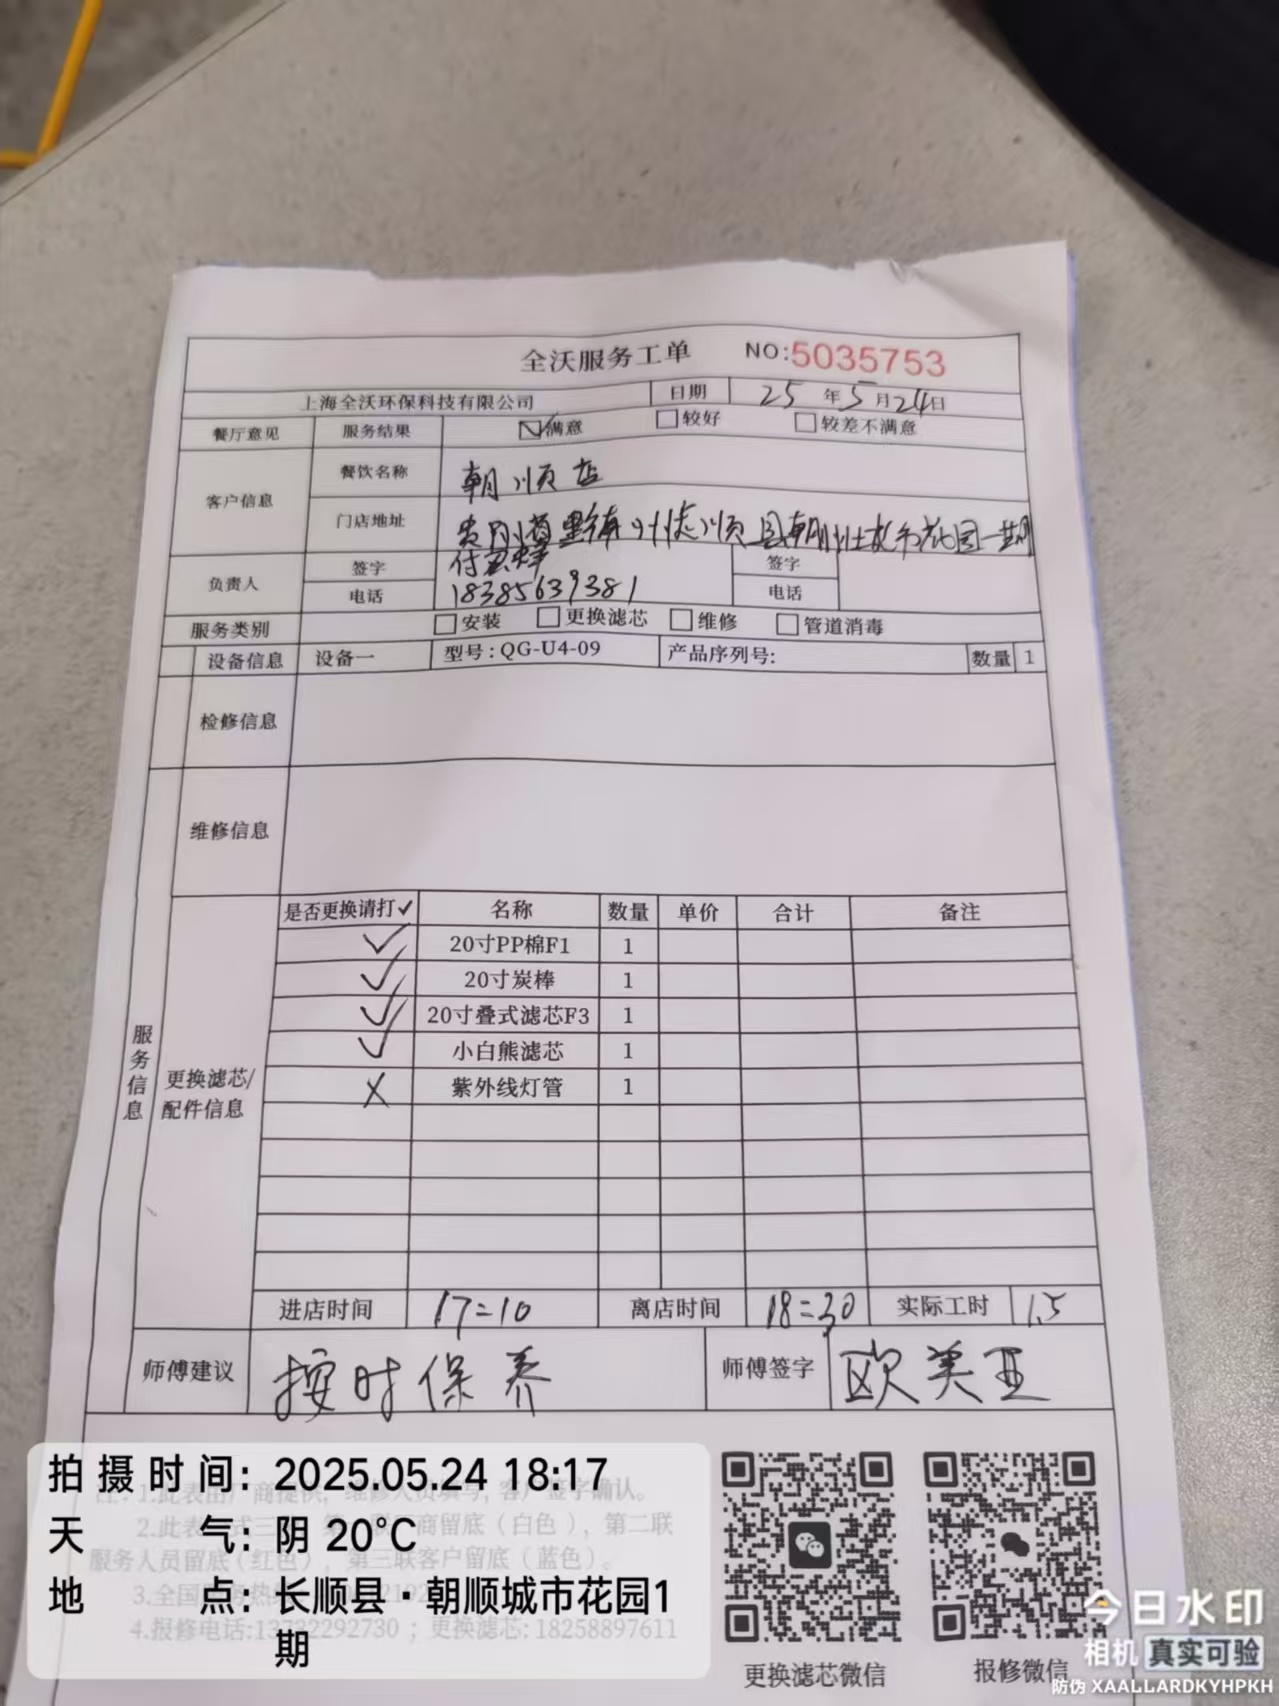 全沃服务工单 NO:5035753
上海全沃环保科技有限公司 日期 25年5月24日
餐厅意见 服务结果 ☑满意 □较好 □较差不满意
客户信息 餐饮名称 朝顺店
门店地址 贵州省黔南州长顺县朝顺城市花园一期
负责人 签字 付 签字
电话 18385639381 电话
服务类别 □安装 □更换滤芯 □维修 □管道消毒
设备信息 设备一 型号:QG-U4-09 产品序列号: 数量 1
检修信息
维修信息
服务信息
更换滤芯/配件信息
是否更换请打✓ 名称 数量 单价 合计 备注
✓ 20寸PP棉F1 1
✓ 20寸炭棒 1
✓ 20寸叠式滤芯F3 1
✓ 小白熊滤芯 1
X 紫外线灯管 1
进店时间 17:10 离店时间 18:30 实际工时 1.5
师傅建议 按时保养 师傅签字 欧美亚
注:1.此表由厂商提供,维修人员填写,客户签字确认。
2.此表 式三 商留底(白色),第二联
服务人员留底(红色),第三联客户留底(蓝色)。
3.全国服务热
4.报修电话:13732292730;更换滤芯:18258897611
拍摄时间:2025.05.24 18:17
天气:阴 20°C
地点:长顺县·朝顺城市花园1期
更换滤芯微信 报修微信
今日水印
相机 真实可验
防伪 XAALLARDKYHPKH